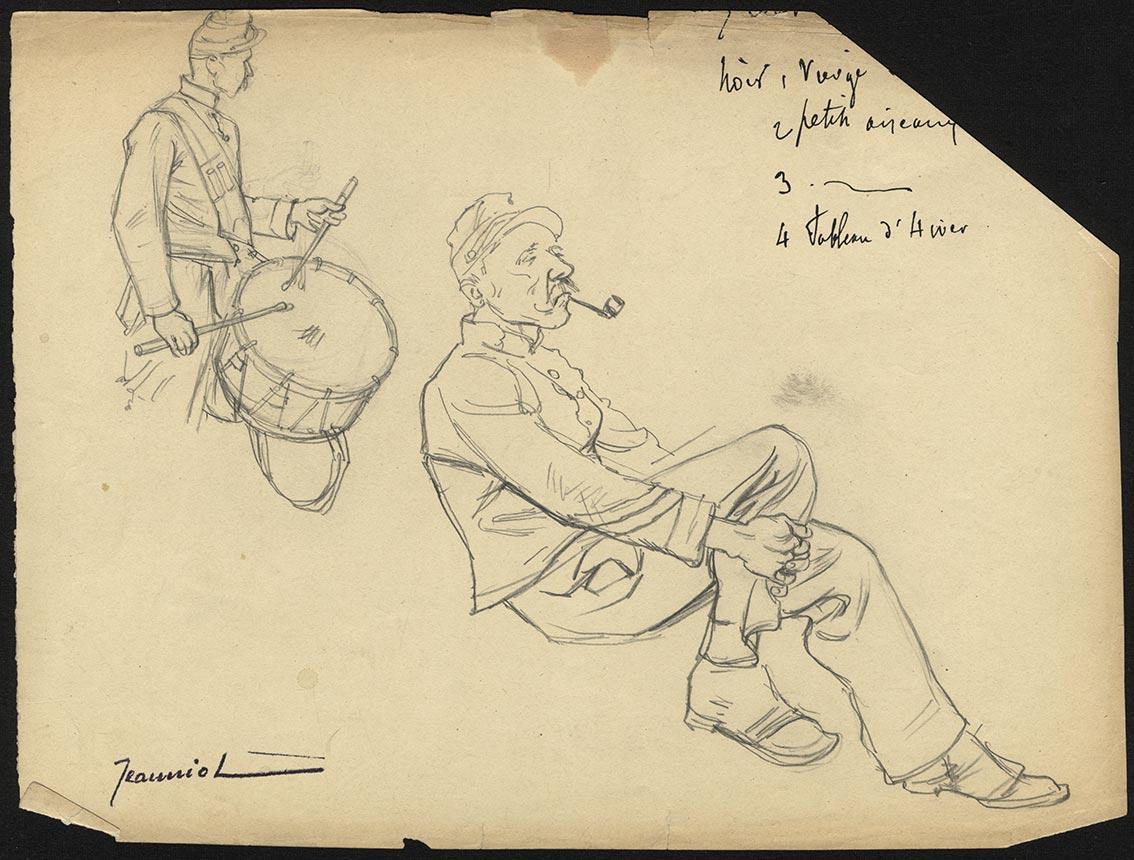 Noir 1 Vierge
2 petits oiseaux
3 .
4 Tableau d'Hiver
Jeanniot